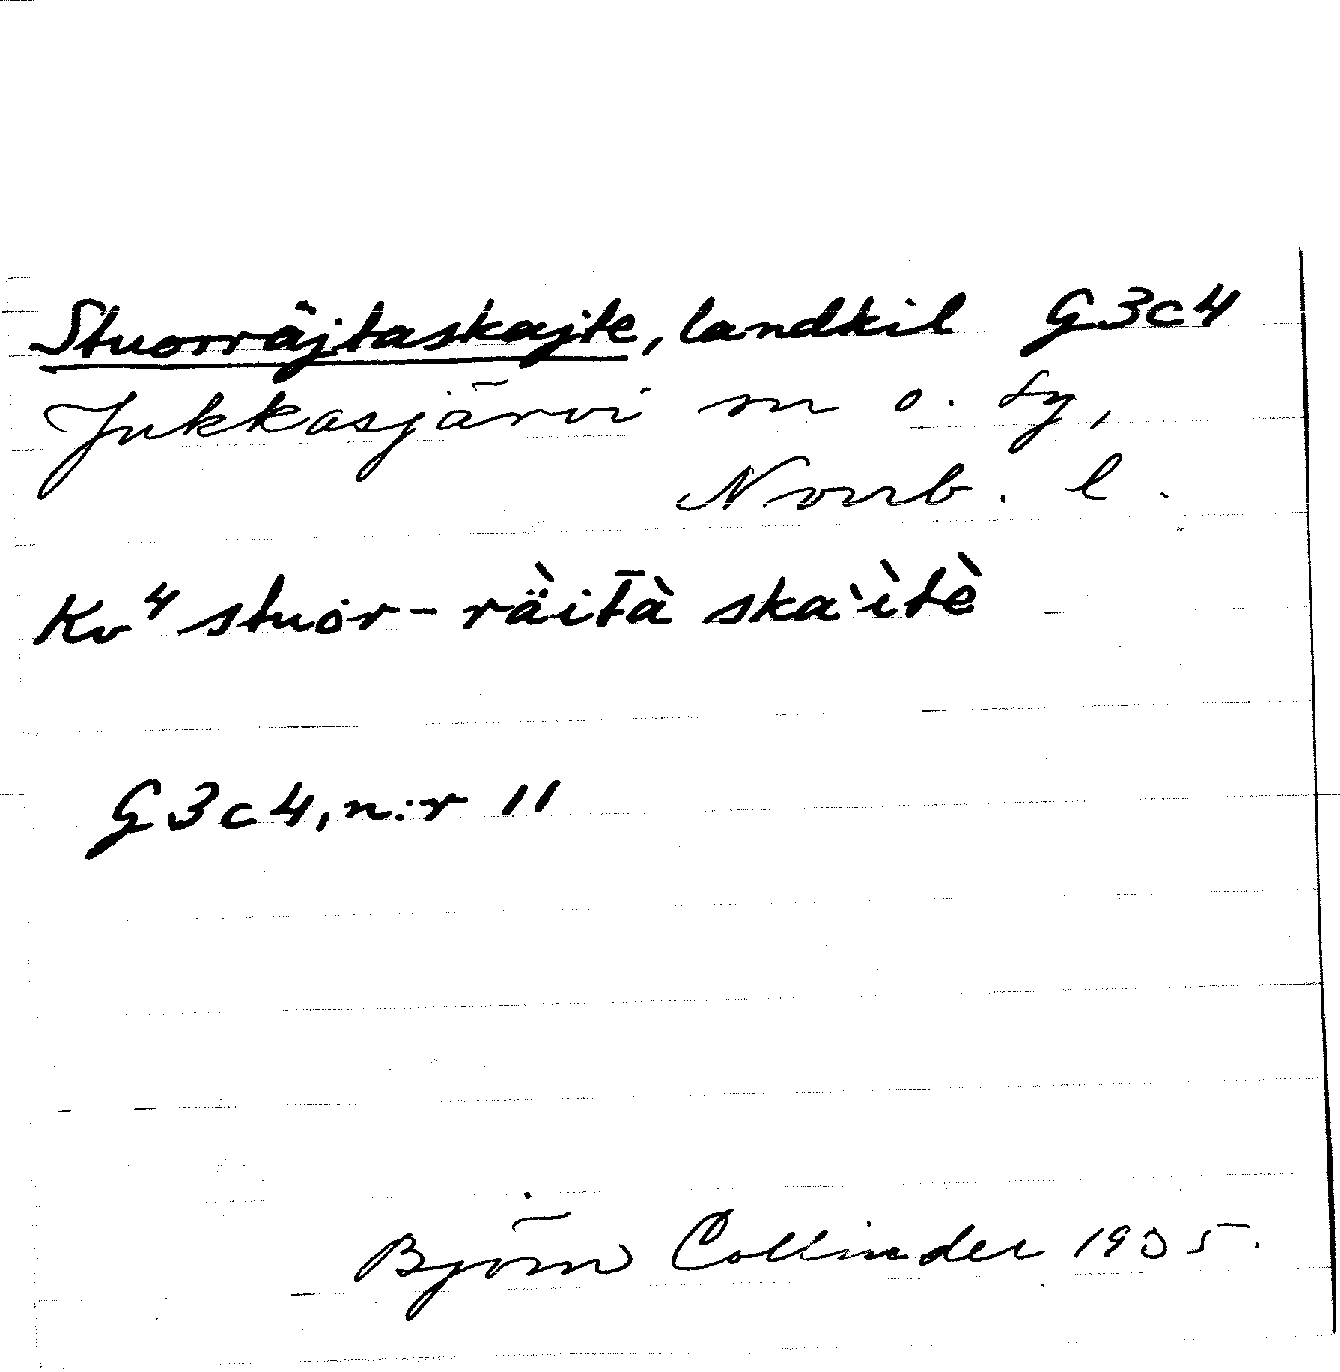 Stuorräjtaskajte, landkil G3c4
Jukkasjärvi sn o. tg,
Norrb. l.
Kv⁴ stuȯr-rä̀ità ska`ìtè
G3c4, n:r 11
Björn Collinder 1935.